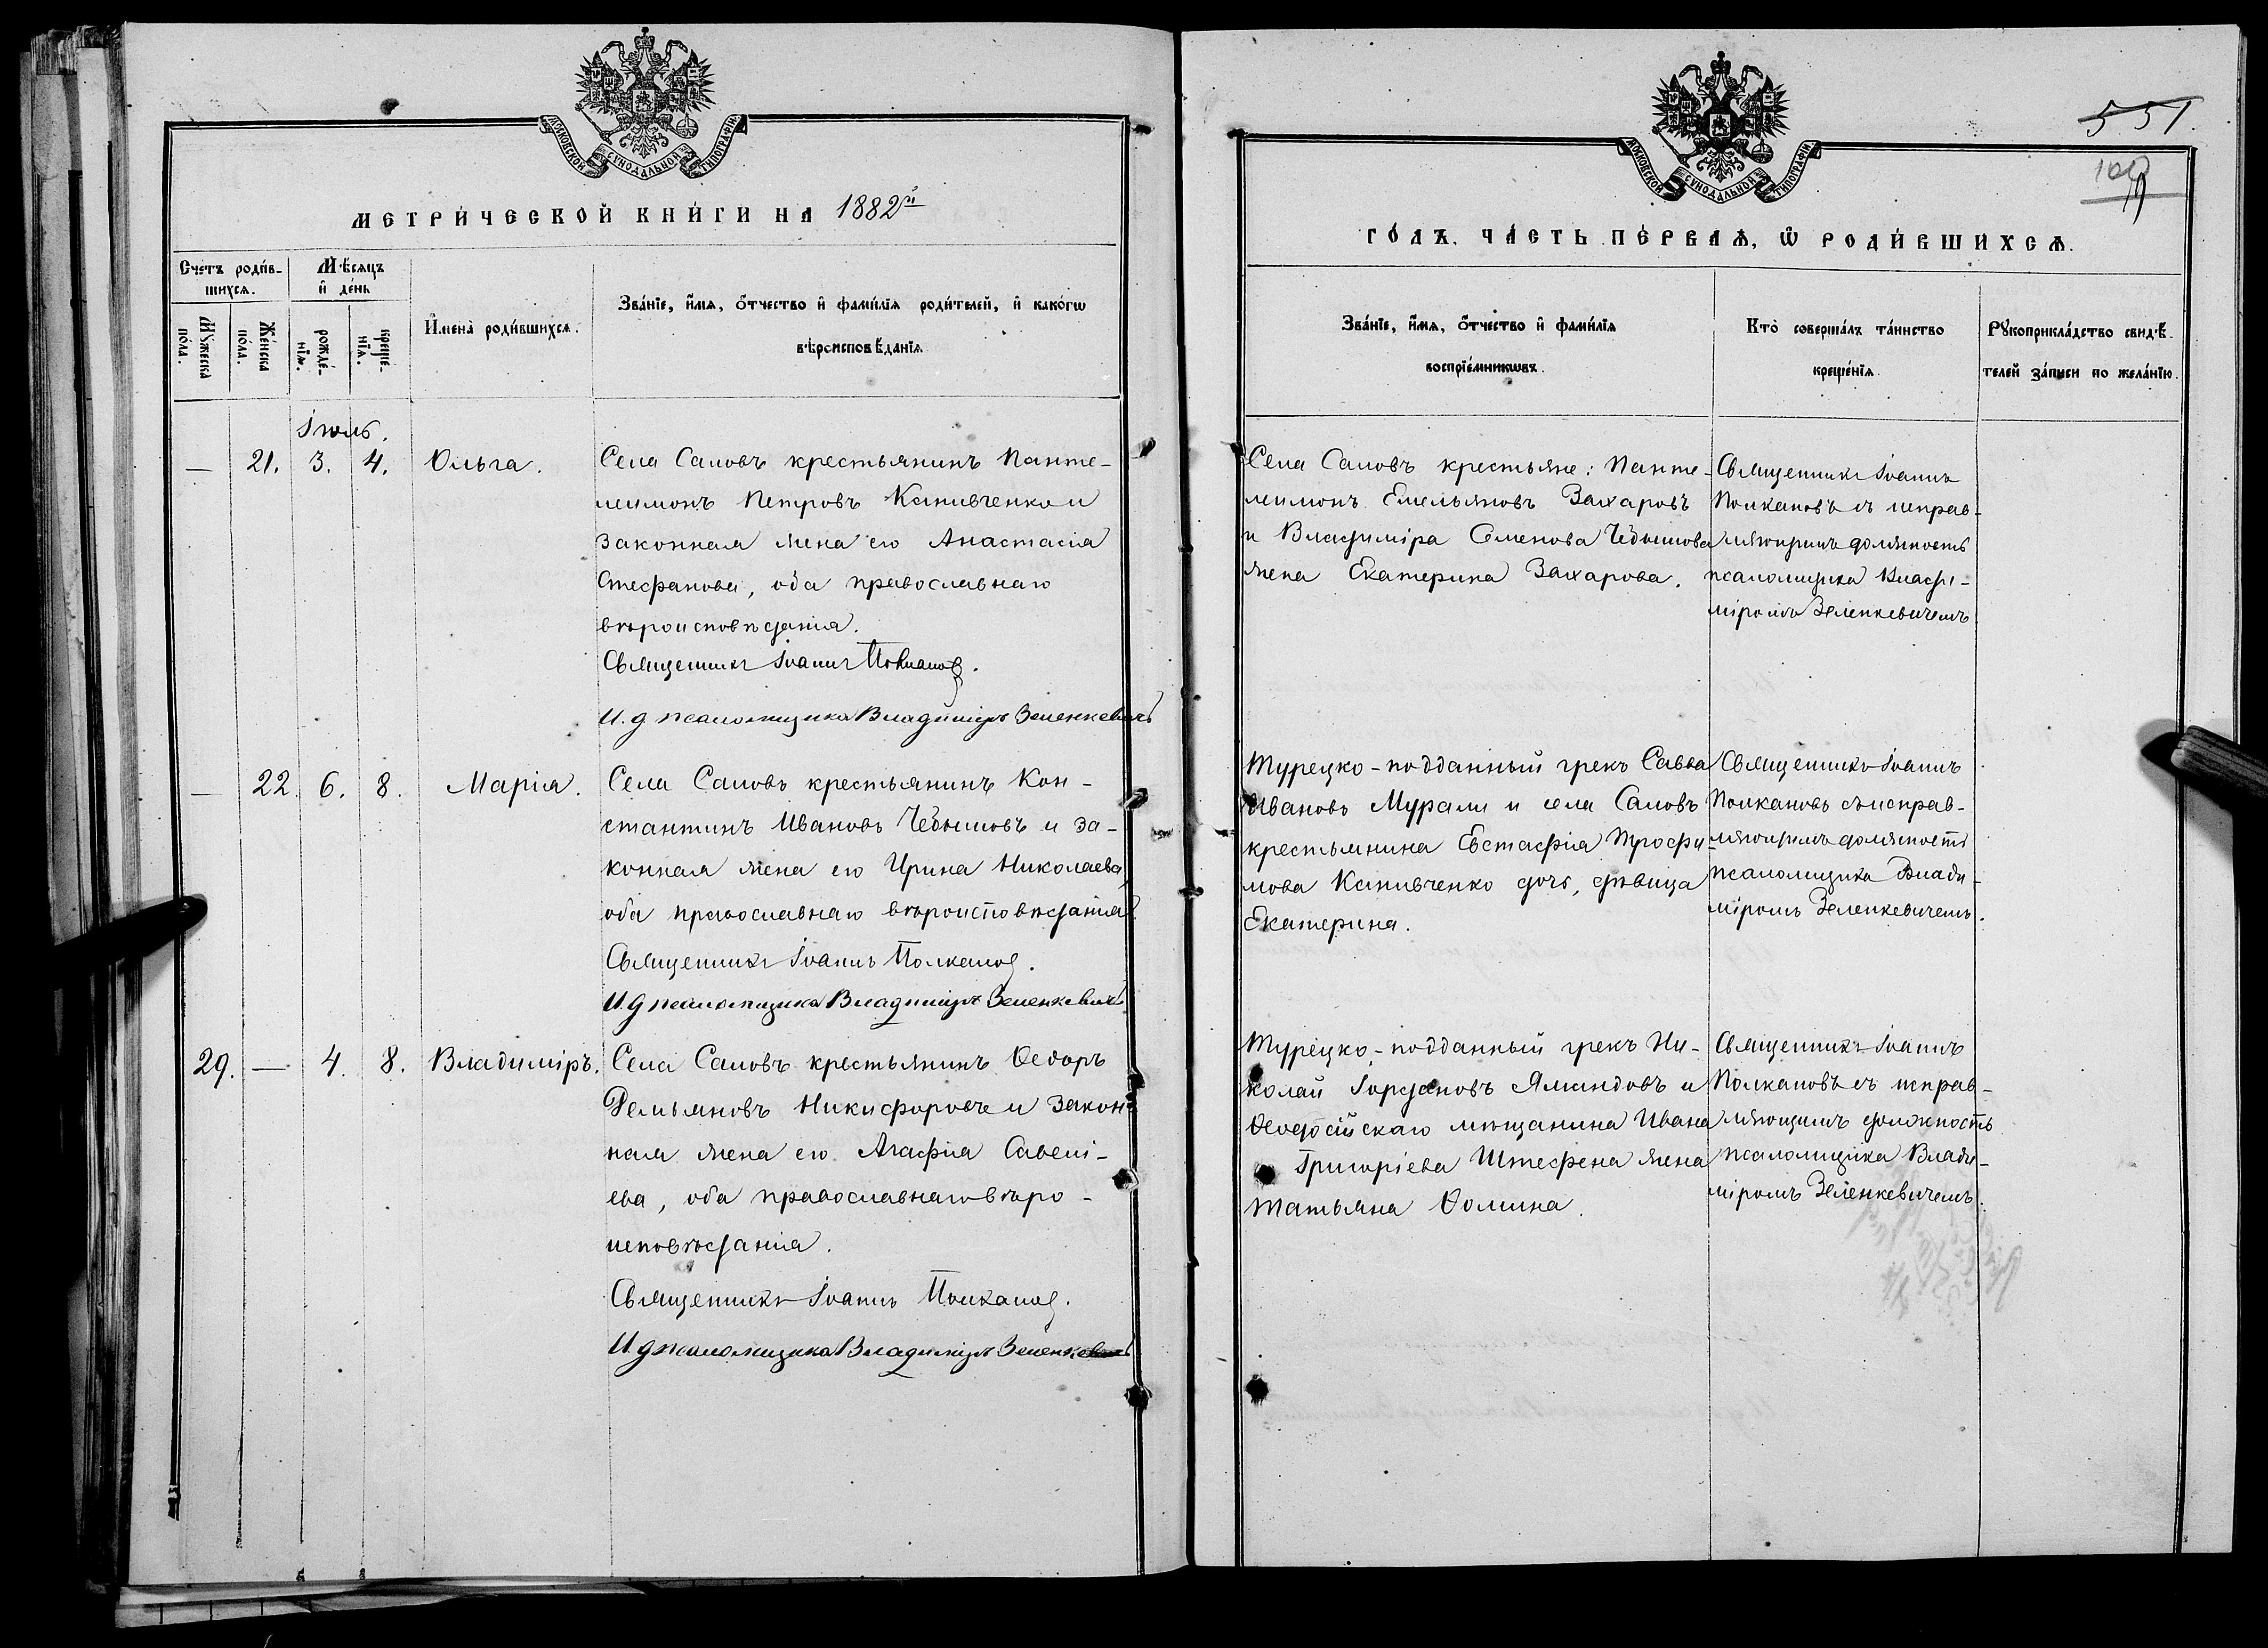 МОСКОВСКОЙ СУНОДАЛЬНОЙ ТИПОГРАФІИ
МЕТРИ́ЧЕСКОЙ КНИ́ГИ НА 1882й
Счетъ роди́в-
шихся.
Мѣсяцъ
и҆ де́нь
Мꙋжеска
по́ла.
Же́нска
по́ла.
рожде́-
нїѧ.
креще́-
нїѧ.
И҆мена̀ роди́вшихсѧ.
Зва́нїе, и҆́мѧ, ѻ҆́тчество и҆ фами́лїѧ роди́телей, и҆ како́гѡ
вѣроисповѣ́данїѧ
Іюль.
— 21. 3. 4. Ольга.
Села Саловъ крестьянинъ Панте-
леимонъ Петровъ Книвченко и
законная жена его Анастасія
Стефанова, оба православнаго
вѣроисповѣданія.
Священникъ Іоаннъ Полкановъ.
И. д псаломщика Владиміръ Зеленкевичъ
— 22. 6. 8. Марія.
Села Саловъ крестьянинъ Кон-
стантинъ Ивановъ Чебышовъ и за-
конная жена его Ирина Николаева,
оба православнаго вѣроисповѣданія.
Священникъ Іоаннъ Полкановъ.
И. д псаломщика Владиміръ Зеленкевичъ
29. — 4. 8. Владиміръ.
Села Саловъ крестьянинъ Ѳедоръ
Демьяновъ Никифоровъ и закон-
ная жена его Агафія Савелі-
ева, оба православнаго вѣро-
исповѣданія.
Священникъ Іоаннъ Полкановъ.
И. д псаломщика Владиміръ Зеленкевичъ
МОСКОВСКОЙ СУНОДАЛЬНОЙ ТИПОГРАФІИ
551.
ГО́ДЪ. ЧА́СТЬ ПЕ́РВАѦ, Ѡ҆ РОДИ́ВШИХСѦ.
Зва́нїе, и҆́мѧ, ѻ҆́тчество и҆ фами́лїѧ
воспрїе́мникѡвъ.
Кто̀ соверша́лъ та́инство
креще́нїѧ.
Рꙋкоприкла́дство свидѣ́-
телей за́писи по жела́нїю.
Села Саловъ крестьяне: Панте-
леимонъ Емельяновъ Захаровъ
и Владиміра Семенова Чебышова
жена Екатерина Захарова.
Священникъ Іоаннъ
Полкановъ съ исправ-
ляющимъ должность
псаломщика Влади-
міромъ Зеленкевичемъ
Турецко-подданный грекъ Савва
Ивановъ Мурали и села Саловъ
крестьянина Евстафія Трофи-
мова Книвченко дочь, дѣвица
Екатерина.
Священникъ Іоаннъ
Полкановъ съ исправ-
ляющимъ должность
псаломщика Влади-
міромъ Зеленкевичемъ.
Турецко-подданный грекъ Ни-
колай Іордановъ Ялындовъ и
Ѳеодосійскаго мѣщанина Ивана
Григоріева Штефена жена
Татьяна Ѳомина.
Священникъ Іоаннъ
Полкановъ съ исправ-
ляющимъ должность
псаломщика Влади-
міромъ Зеленкевичемъ.